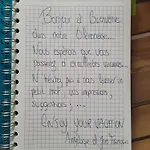 Bonjour & Bienvenue
dans notre
Nous espérons que vous
passerez d'excellentes vacances.
N'hésitez pas à nous laisser un
petit mot vos impressions,
suggestions, ...
ENJOY YOUR VACATION